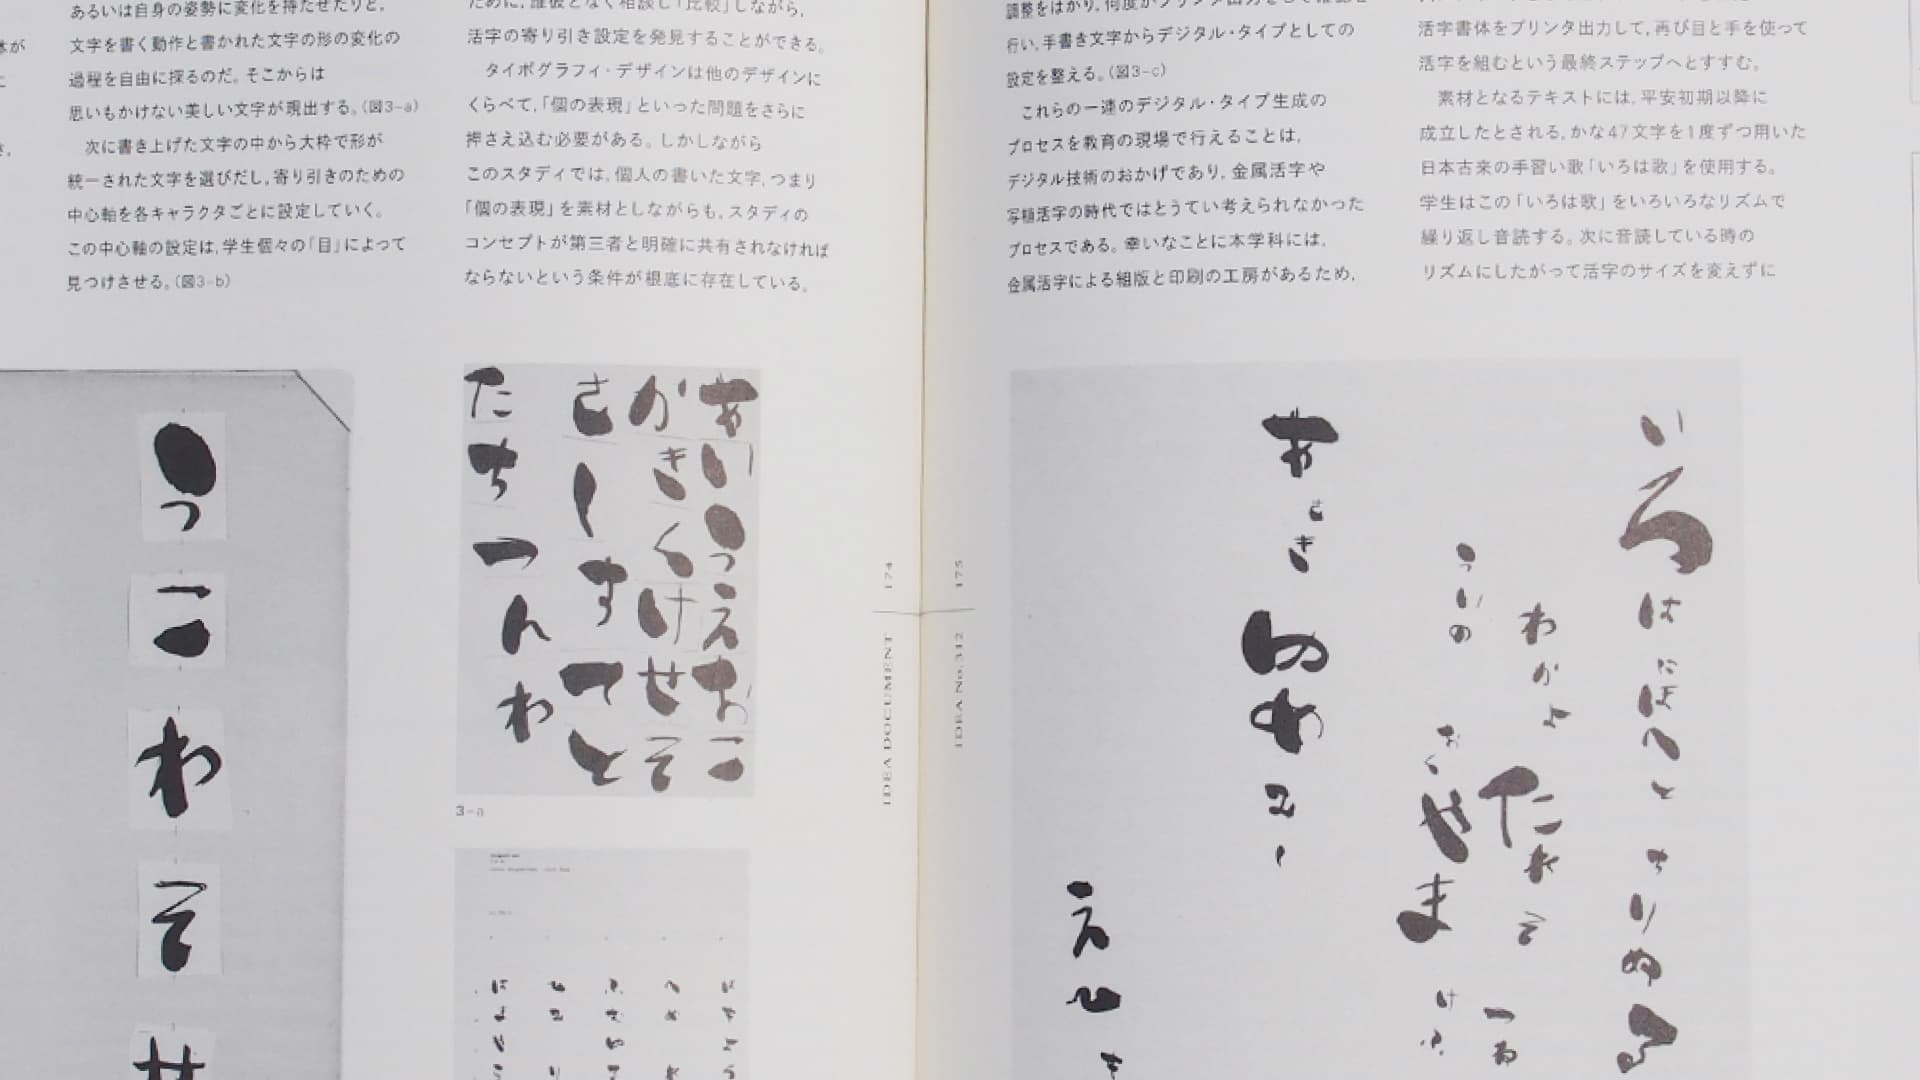 あるいは自身の姿勢に変化を持たせたりと、
文字を書く動作と書かれた文字の形の変化の
過程を自由に探るのだ。そこからは
思いもかけない美しい文字が現出する。(図3-a)
次に書き上げた文字の中から大枠で形が
統一された文字を選びだし、寄り引きのための
中心軸を各キャラクタごとに設定していく。
この中心軸の設定は、学生個々の「目」によって
見つけさせる。(図3-b)
ために、誰彼となく相談し「比較」しながら、
活字の寄り引き設定を発見することができる。
タイポグラフィ・デザインは他のデザインに
くらべて、「個の表現」といった問題をさらに
押さえ込む必要がある。しかしながら
このスタディでは、個人の書いた文字、つまり
「個の表現」を素材としながらも、スタディの
コンセプトが第三者と明確に共有されなければ
ならないという条件が根底に存在している。
うこわそせ
あいうえおこ
かきくけせそ
さしすてと
たちつんわ
3-a
174
IDEA DOCUMENT
175
IDEA No.312
行い、手書き文字からデジタル・タイプとしての
設定を整える。(図3-c)
これらの一連のデジタル・タイプ生成の
プロセスを教育の現場で行えることは、
デジタル技術のおかげであり、金属活字や
写植活字の時代ではとうてい考えられなかった
プロセスである。幸いなことに本学科には、
金属活字による組版と印刷の工房があるため、
活字書体をプリンタ出力して、再び目と手を使って
活字を組むという最終ステップへとすすむ。
素材となるテキストには、平安初期以降に
成立したとされる、かな47文字を1度ずつ用いた
日本古来の手習い歌「いろは歌」を使用する。
学生はこの「いろは歌」をいろいろなリズムで
繰り返し音読する。次に音読している時の
リズムにしたがって活字のサイズを変えずに
いろはにほへとちりぬる
わかよたれそつね
うゐの
おくやまけふ
あさきゆめみし
ゑひも